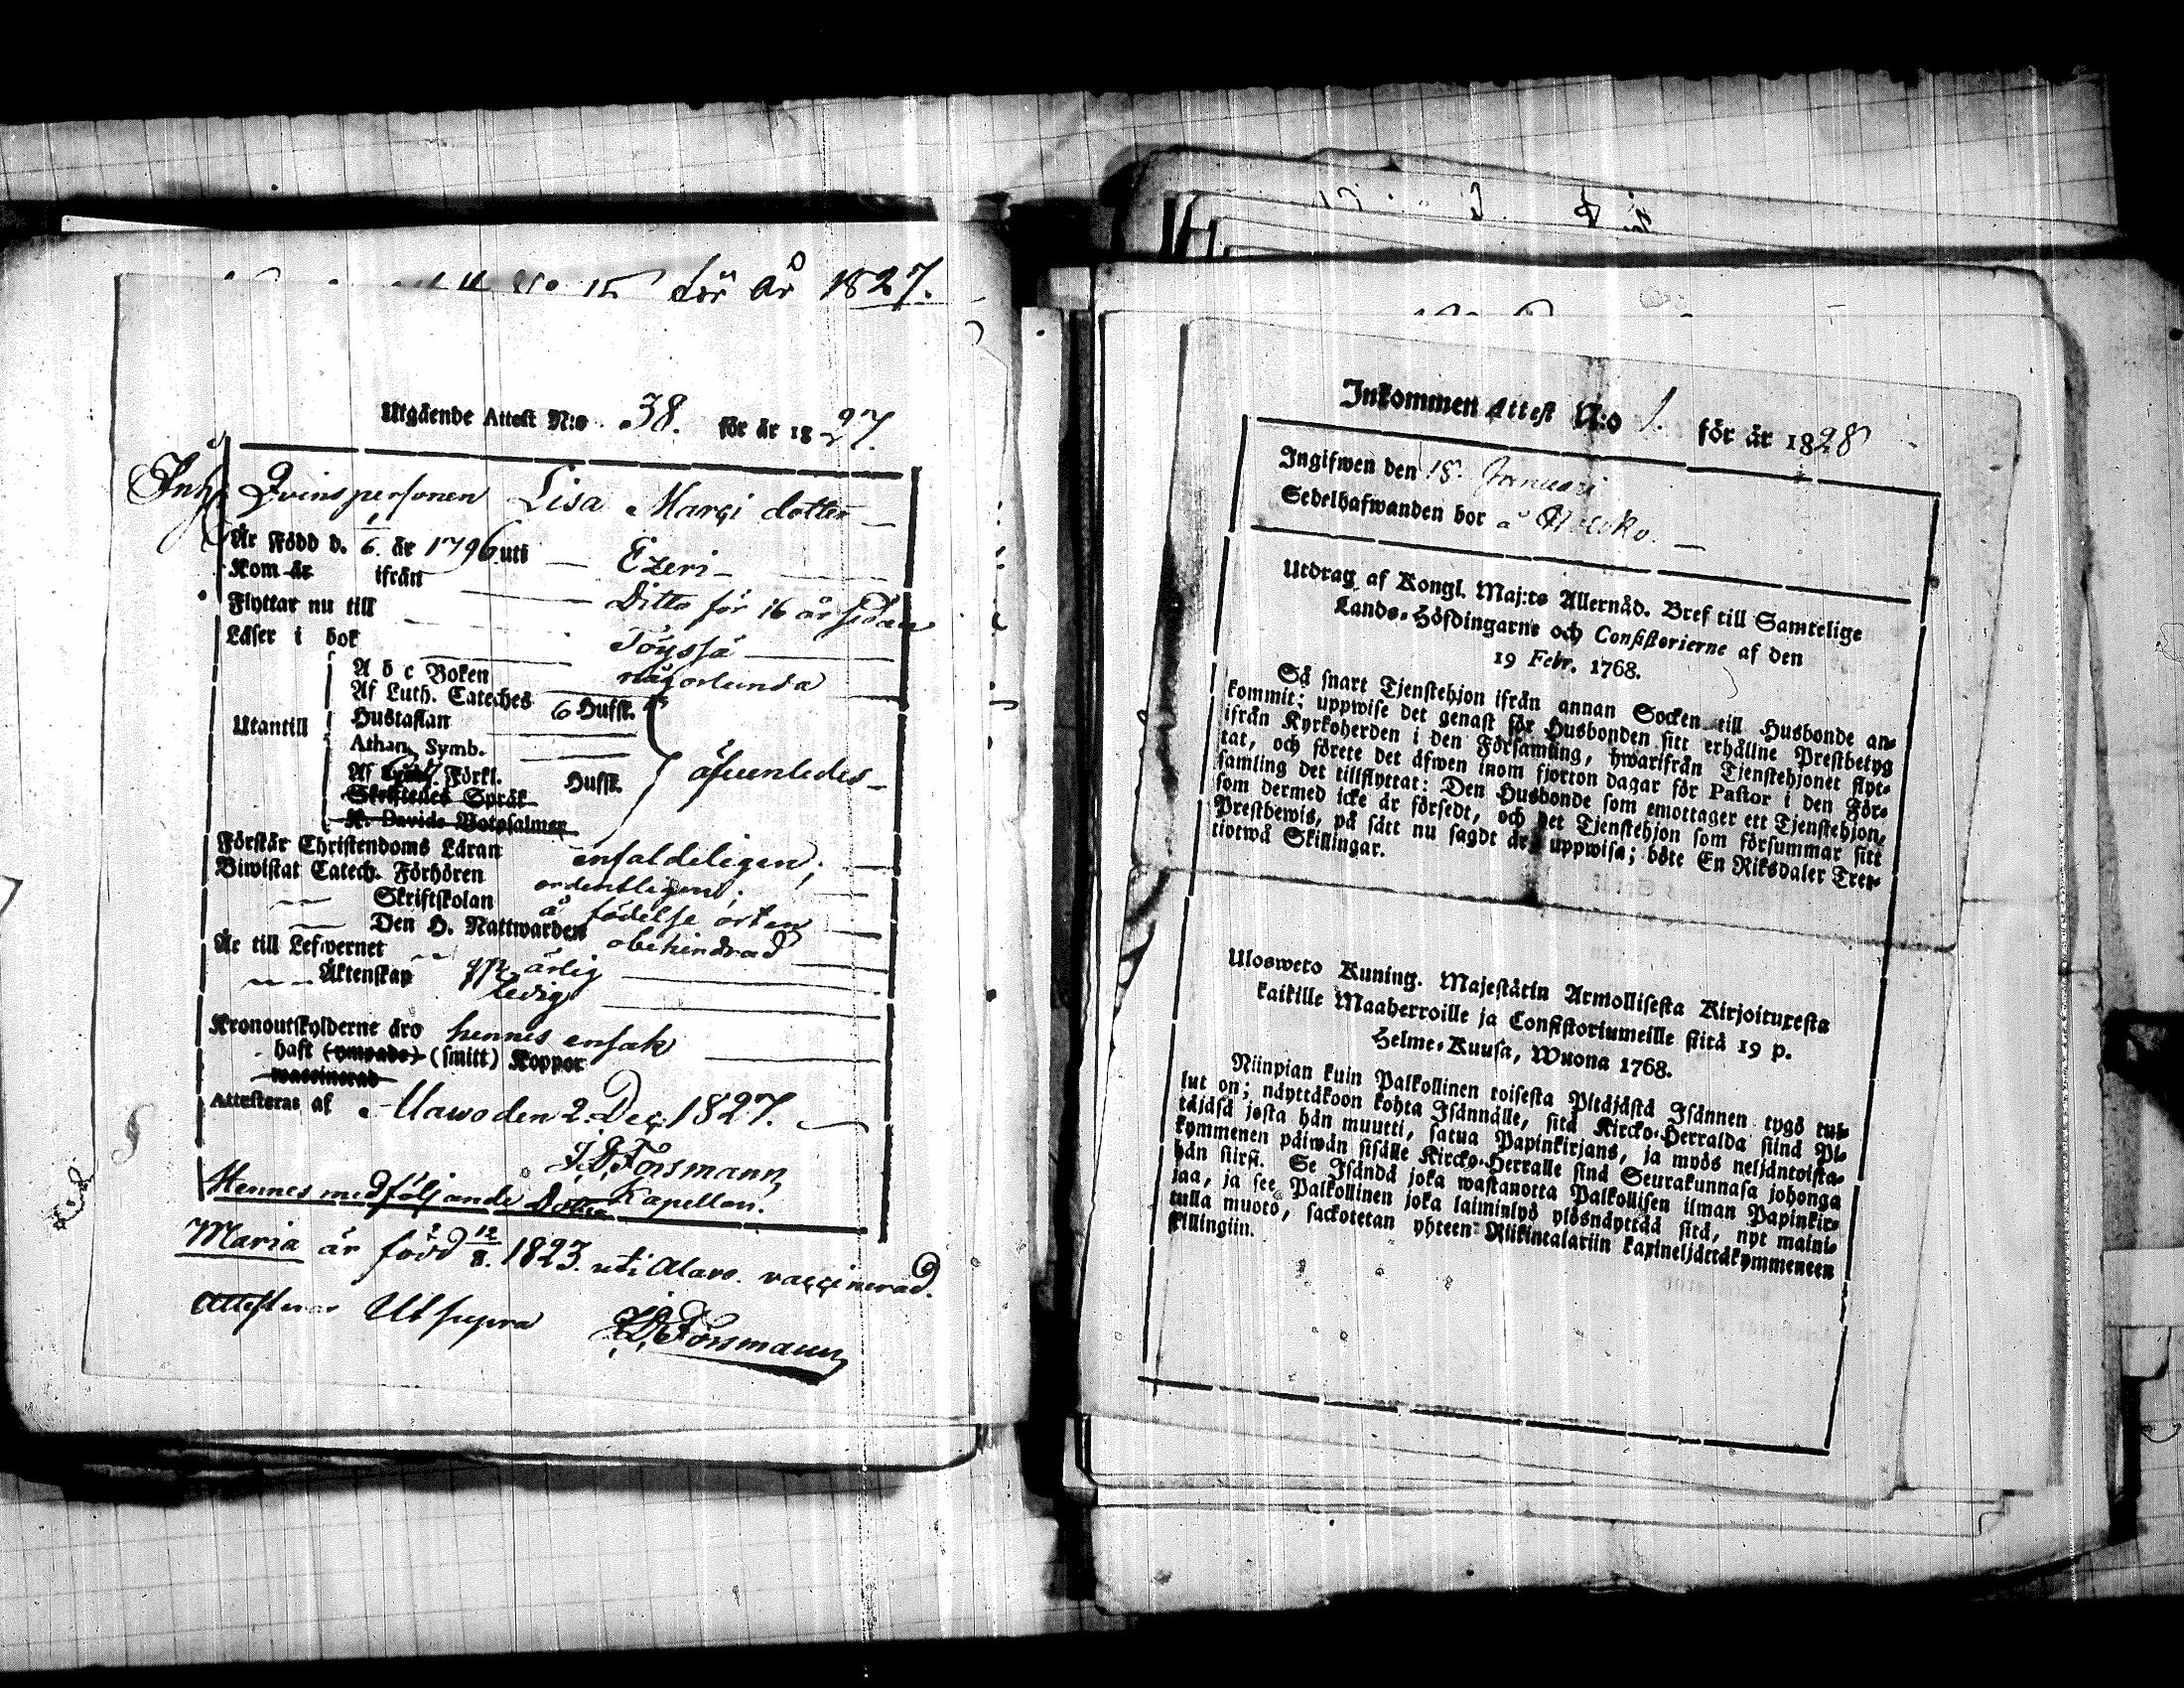 för år 1827.
Utgående Attest N:o 38. för år 1827.
Inh. Qvinspersonen Lisa Marci dotter
Är Född d. 1/6. år 1796. uti Ezeri
Kom år ifrån Ditto för 16 år sedan
Flyttar nu till Töyssä
Läser i bok någorlunda
Utantill
A b c Boken
Af Luth. Cateches 6 Hufst.
Hustaflan
Athan. Symb.
Af Förkl. Hufst. äfvenledes
Skriftenes Språk
K. Davids Botpsalmer
Förstår Christendoms Läran enfaldeligen;
Biwistat Catech. Förhören ordentligen;
Skriftskolan å födelse orten
Den H. Nattwarden obehindrad
Är till Lefwernet ärlig
Äktenskap Ledig
Kronoutskylderne äro hennes ensak
haft (ympade) (smitt) Koppor
waccinerad
Attesteras af Alawo den 2. Dec. 1827.
J. D. Forsmann
Kapellan.
Hennes medföljande Dotter
Maria är född 12/8. 1823. uti Alavo. vaccinerad.
Attesteras Ut supra J. D. Forsmann
Inkommen Attest N:o 1. för år 1828
Ingifwen den 18. Januari
Sedelhafwanden bor å
Utdrag af Kongl. Maj:ts Allernåd. Bref till Samtelige
Lands-Höfdingarne och Consistorierne af den
19 Febr. 1768.
Så snart Tjenstehjon ifrån annan Socken till Husbonde an-
kommit; uppwise det genast för Husbonden sitt erhållne Prestbetyg
ifrån Kyrkoherden i den Församling, hwarifrån Tjenstehjonet flyt-
tat, och förete det äfwen inom fjorton dagar för Pastor i den För-
samling det tillflyttat: Den Husbonde som emottager ett Tjenstehjon,
som dermed icke är försedt, och det Tjenstehjon som försummar sitt
Prestbewis, på sätt nu sagdt är, uppwisa; böte En Riksdaler Tret-
tiotwå Skillingar.
Ulosweto Kuning. Majestätin Armollisesta Kirjoituxesta
kaikille Maaherroille ja Consistoriumeille siitä 19 p.
Helme-Kuusa, Wuona 1768.
Niinpian kuin Palkollinen toisesta Pitäjästä Isännen tygö tul-
lut on; näyttäkoon kohta Isännälle, sitä Kircko-Herralda siinä Pi-
täjäsä josta hän muutti, saatua Papinkirjans, ja myös neljäntoista-
kymmenen päiwän sisälle Kircko-Herralle siinä Seurakunnasa johonga
hän siirsi. Se Isändä joka wastanotta Palkollisen ilman Papinkir-
jaa, ja see Palkollinen joka laiminlyö ylösnäyttää sitä, nyt maini-
tulla muoto, sackotetan yhteen Riikintalariin kaxineljättäkymmeneen
killingiin.